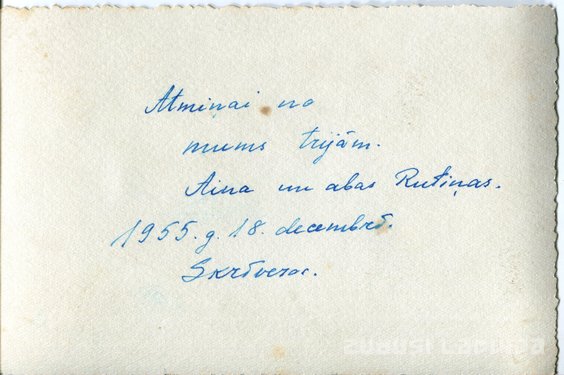 Atmiņai no
mums trijām.
Aina un abas Rutiņas.
1955. g. 18. decembrī.
Skrīveros.
zudusi Latvija